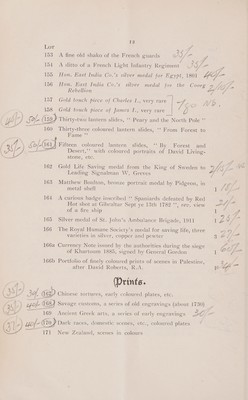 14
Lot
153 A fine old shako of the French guards 35/-
154 A ditto of a French Light Infantry Regiment 35/-
155 Hon. East India Co.'s silver medal for Egypt, 1801
156 Hon. East India Co.'s silver medal for the Coorg
Rebellion
157 Gold touch piece of Charles I., very rare
158 Gold touch piece of James I., very rare
159 Thirty-two lantern slides, "Peary and the North Pole"
160 Thirty-three coloured lantern slides, "From Forest to
Fame"
161 Fifteen coloured lantern slides, "By Forest and
Desert," with coloured portraits of David Living-
stone, etc.
162 Gold Life Saving medal from the King of Sweden to
Leading Signalman W. Greves
163 Matthew Boulton, bronze portrait medal by Pidgeon, in
metal shell
164 A curious badge inscribed "Spaniards defeated by Red
Hot shot at Gibraltar Sept ye 13th 1782", rev. view
of a fire ship
165 Silver medal of St. John's Ambulance Brigade, 1911
166 The Royal Humane Society's medal for saving life, three
varieties in silver, copper and pewter
166a Currency Note issued by the authorities during the siege
of Khartoum 1885, signed by General Gordon
166b Portfolio of finely coloured prints of scenes in Palestine,
after David Roberts, R.A.
Prints.
167 Chinese tortures, early coloured plates, etc.
168 Savage customs, a series of old engravings (about 1730)
169 Ancient Greek arts, a series of early engravings
170 Dark races, domestic scenes, etc., coloured plates
171 New Zealand, scenes in colours